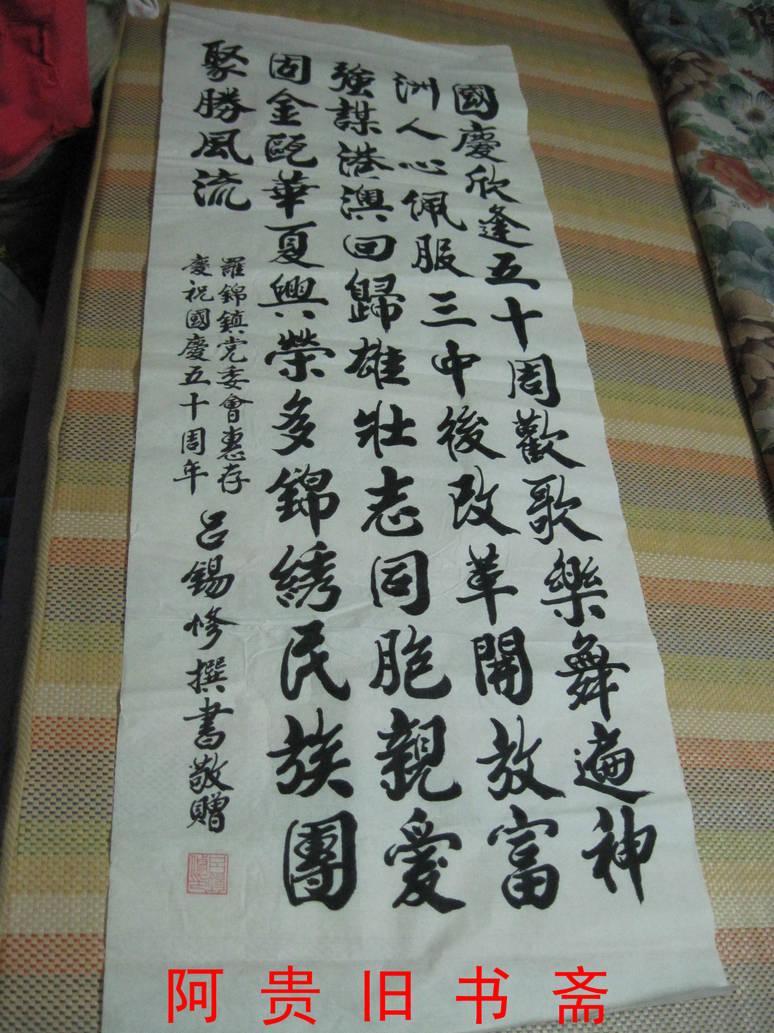 國慶欣逢五十周歡歌樂舞遍神
洲人心佩服三中後改革開放富
強謀港澳回歸雄壯志同胞親愛
固金甌華夏興榮多錦綉民族團
聚勝風流
羅錦鎮党委會惠存
慶祝國慶五十周年
呂錫修撰書敬贈
阿贵旧书斋